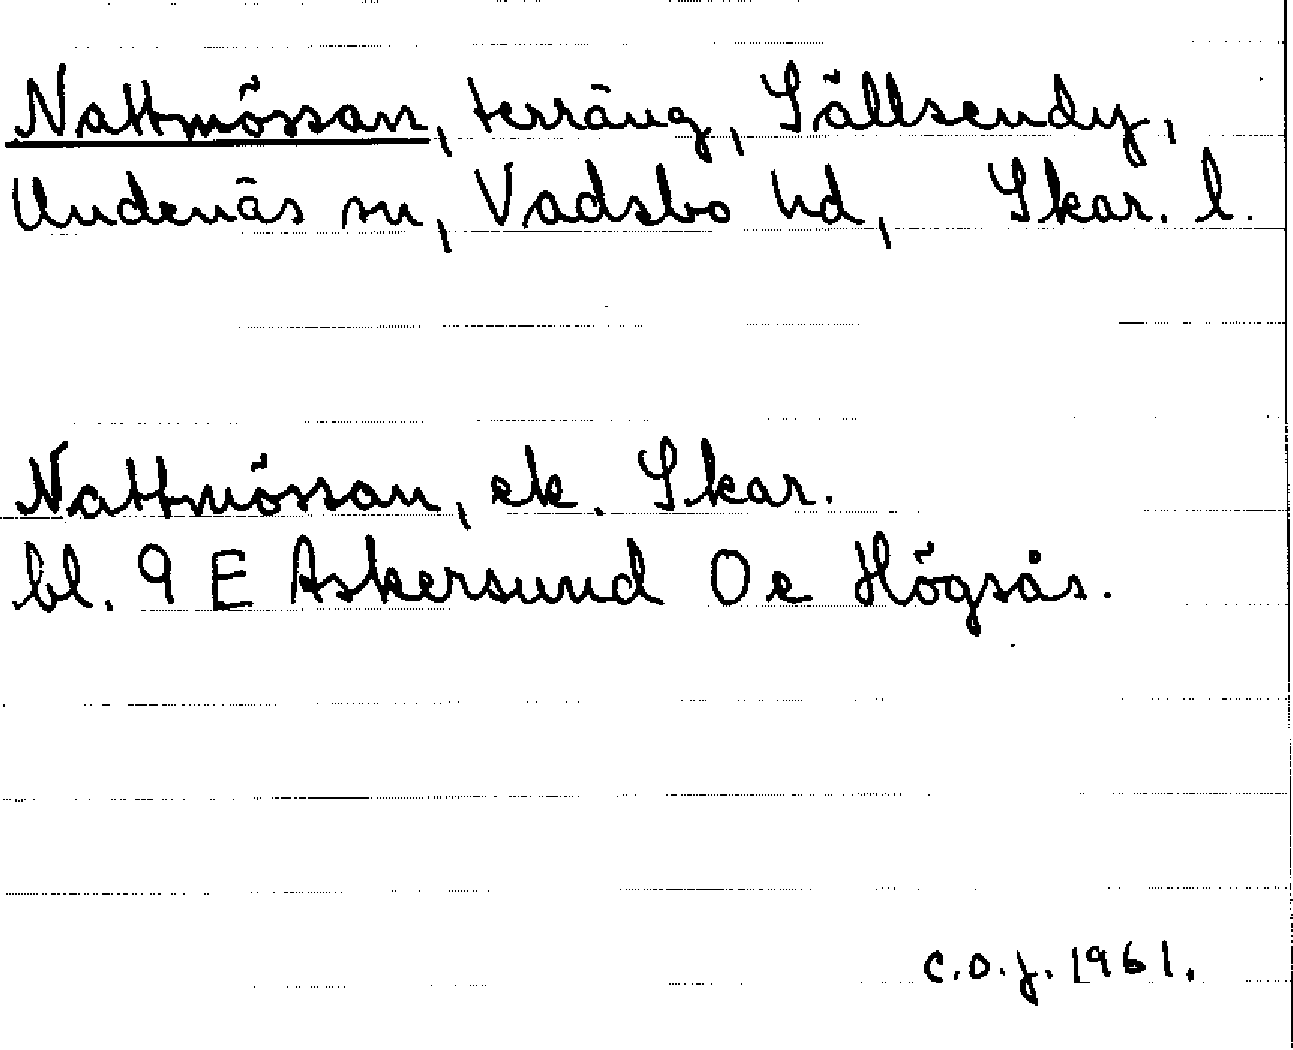 Nattmössan, terräng, Sällsendy,
Undenäs sn, Vadsbo hd, Skar. l.
Nattmössan, ek. Skar.
bl. 9 E Askersund 0 e Högsås.
C.O.J. 1961.